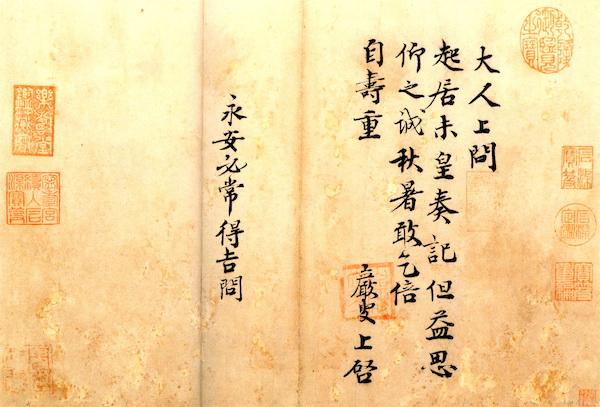 大人上問
起居未皇奏記但益思
仰之誠秋暑敢乞倍
自壽重 巖叟上啓
永安必常得吉問